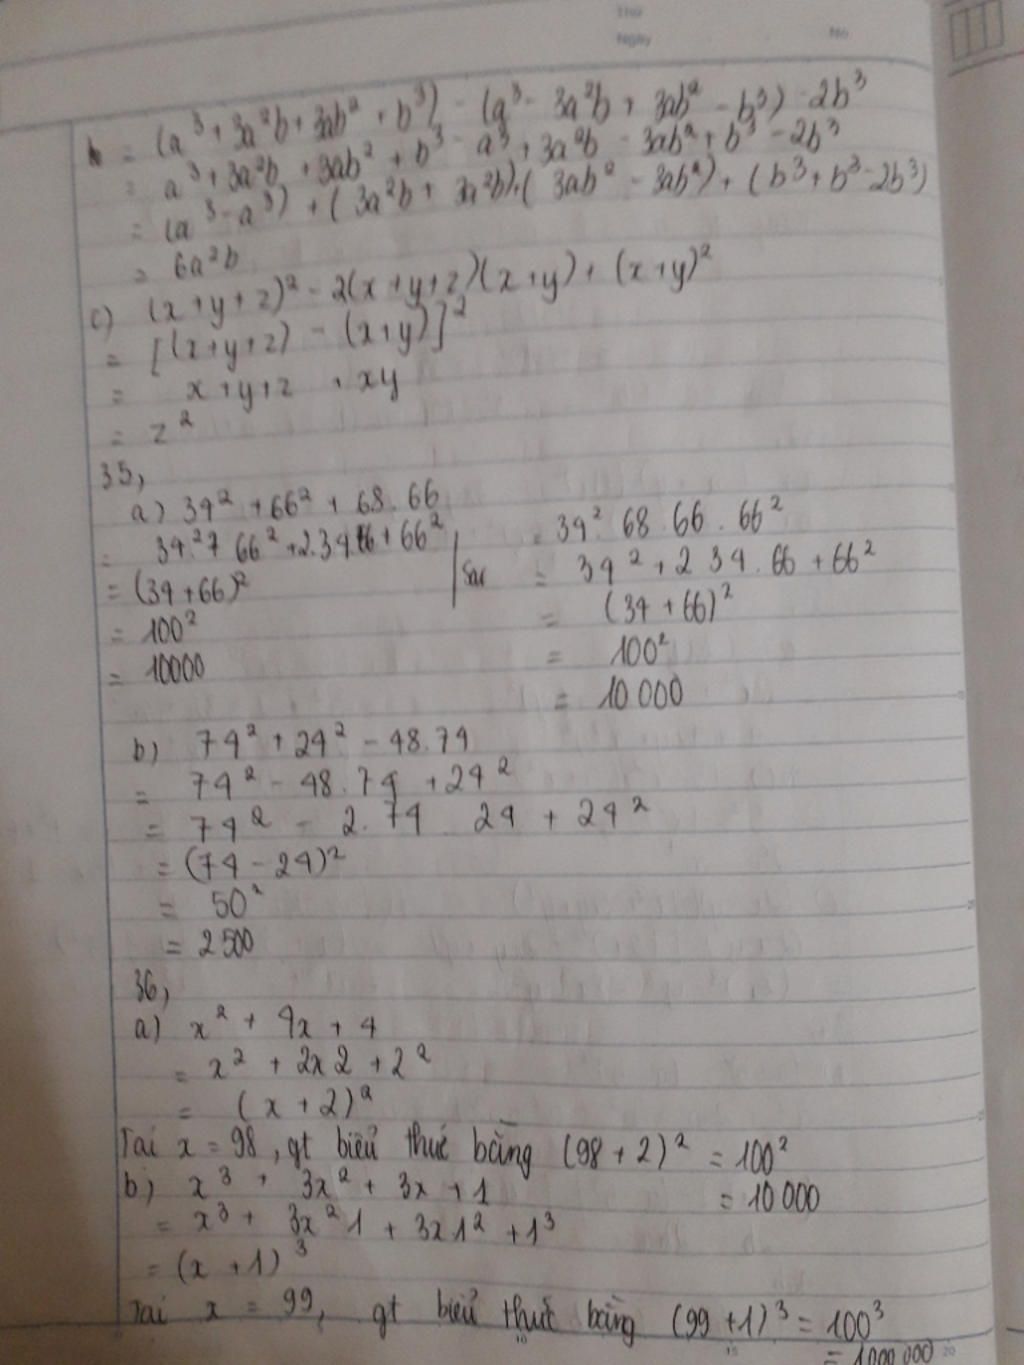 Thứ
Ngày
No
= (a³ + 3a²b + 3ab² + b³) - (a³ - 3a²b + 3ab² - b³) - 2b³
= a³ + 3a²b + 3ab² + b³ - a³ + 3a²b - 3ab² + b³ - 2b³
= (a³ - a³) + (3a²b + 3a²b) + (3ab² - 3ab²) + (b³ + b³ - 2b³)
= 6a²b
c) (x+y+z)² - 2(x+y+z)(x+y) + (x+y)²
= [(x+y+z) - (x+y)]²
= x+y+z + xy
= z²
35,
a) 34² + 66² + 68.66
= 34² 66² + 2.34.66 + 66²
= (34+66)²
= 100²
= 10000
= 34² 68.66.66²
= 34² + 2 34.66 + 66²
= (34 + 66)²
= 100²
= 10 000
b) 74² + 24² - 48.74
= 74² - 48.74 + 24²
= 74² - 2.74 24 + 24²
= (74 - 24)²
= 50²
= 2500
36,
a) x² + 4x + 4
= x² + 2x2 + 2²
= (x + 2)²
Tai x = 98, gt biểu thức bằng (98 + 2)² = 100²
= 10 000
b) x³ + 3x² + 3x + 1
= x³ + 3x²1 + 3x1² + 1³
= (x + 1)³
Tai x = 99, gt biểu thức bằng (99 + 1)³ = 100³
= 1000 000